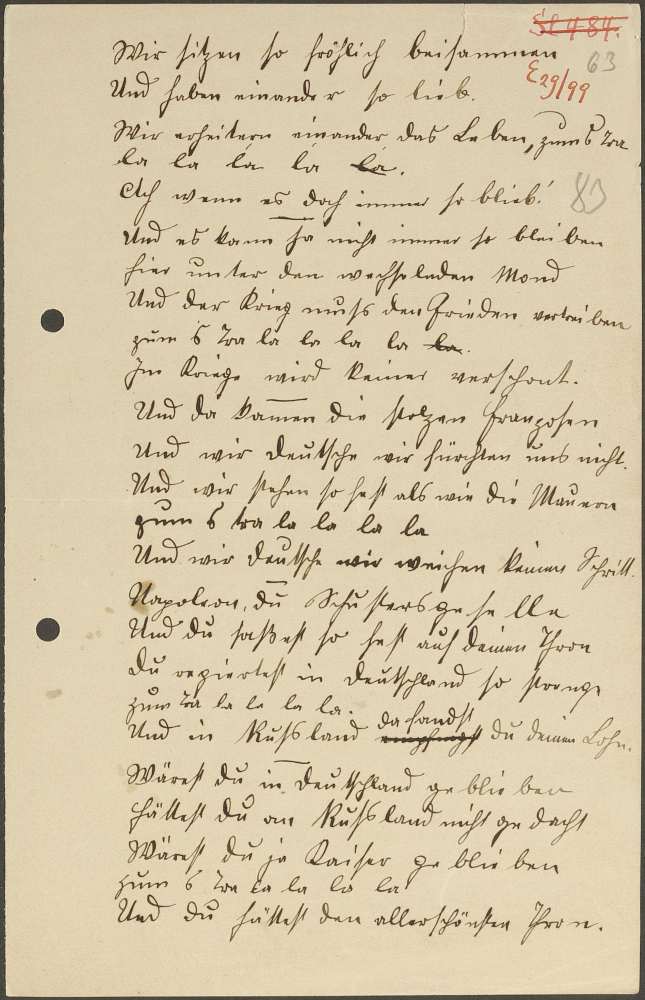 St 484.
63
E 29/99
Wir sitzen so fröhlich beisammen
Und haben einander so lieb.
Wir erheitern einander das Leben, zum 6 Tra
la la la la la.
Ach wenn es doch immer so blieb!
83
Und es kann ja nicht immer so bleiben
hier unter den wechselnden Mond
Und der Krieg muss den Frieden vertreiben
zum 6 Tra la la la la la.
Im Kriege wird keiner verschont.
Und da kamen die stolzen Franzosen
Und wir Deutsche wir fürchten uns nicht.
Und wir stehen so fest als wie die Mauern
zum 6 tra la la la la
Und wir Deutsche wir weichen keinen Schritt.
Napoleon, du Schustergeselle
Und du saßest so fest auf deinen Thron
Du regiertest in Deutschland so strenge
zum Tra la la la la.
Und in Russland empfingst da fandst du deinen Lohn.
Wärest du in Deutschland geblieben
hättest du an Russland nicht gedacht
Wärest du ja Kaiser geblieben
zum 6 Tra la la la la
Und du hättest den allerschönsten Thron.